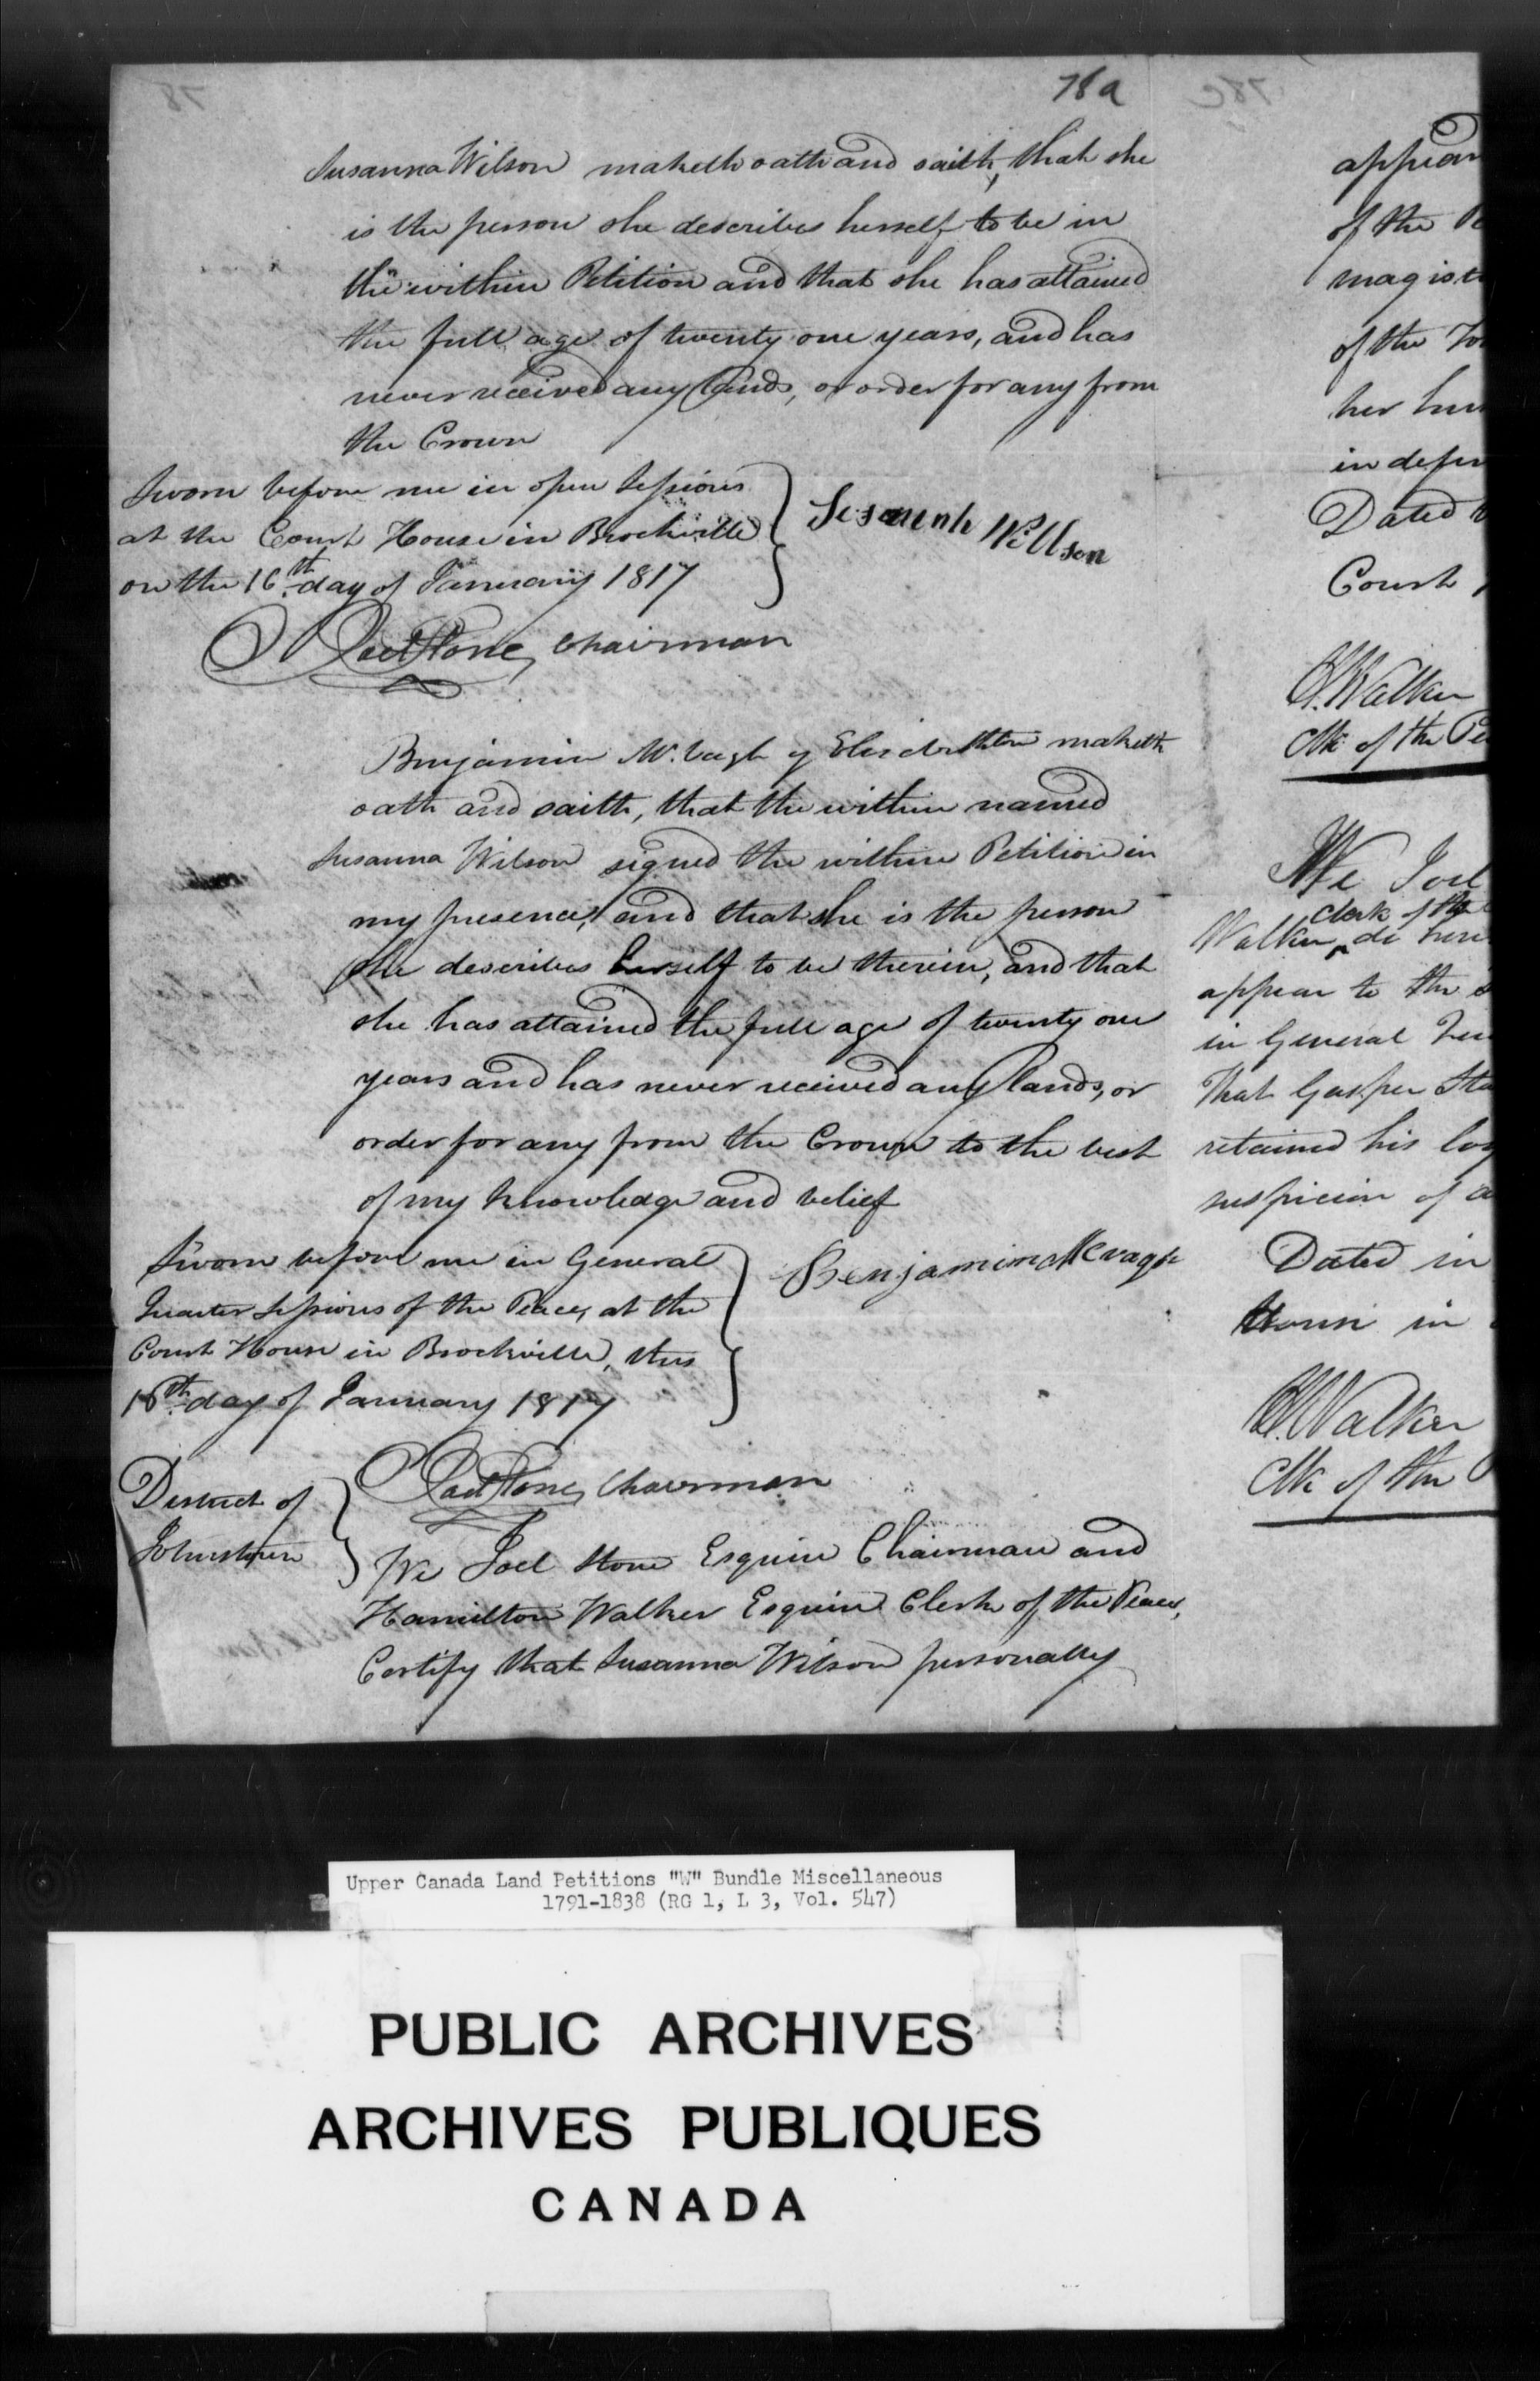 78a
Susanna Wilson maketh oath and saith, that she
is the person she describes herself to be in
the within Petition and that she has attained
the full age of twenty one years, and has
never received any lands, or order for any from
the Crown
Sworn before me in open Sessions
at the Court House in Brockville
on the 16th day of January 1817
Willson
Joel Stone, Chairman
Benjamin McVagh of Elizabethtown maketh
oath and saith, that the within named
Susanna Wilson signed the within Petition in
my presence, and that she is the person
she describes herself to be therein, and that
she has attained the full age of twenty one
years and has never received any lands, or
order for any from the Crown to the best
of my knowledge and belief
Sworn before me in General
Quarter Sessions of the Peace, at the
Court House in Brockville, this
16th day of January 1817
Benjamin McVagh
Joel Stone, Chairman
District of
Johnstown
We Joel Stone Esquire Chairman and
Hamilton Walker Esquire Clerk of the Peace,
Certify that Susanna Wilson personally
78c
appear
of the Pe
magist
of the
her hus
in defen
Dated
Court
H. Walker
Clk of the Pe
We Joel
Clerk of the
Walker, do here
appear to the
in General
That Gasper Sta
retained his loy
suspicion of a
Dated in
House in
H. Walker
Clk of the P
Upper Canada Land Petitions "W" Bundle Miscellaneous
1791-1838 (RG 1, L 3, Vol. 547)
PUBLIC ARCHIVES
ARCHIVES PUBLIQUES
CANADA